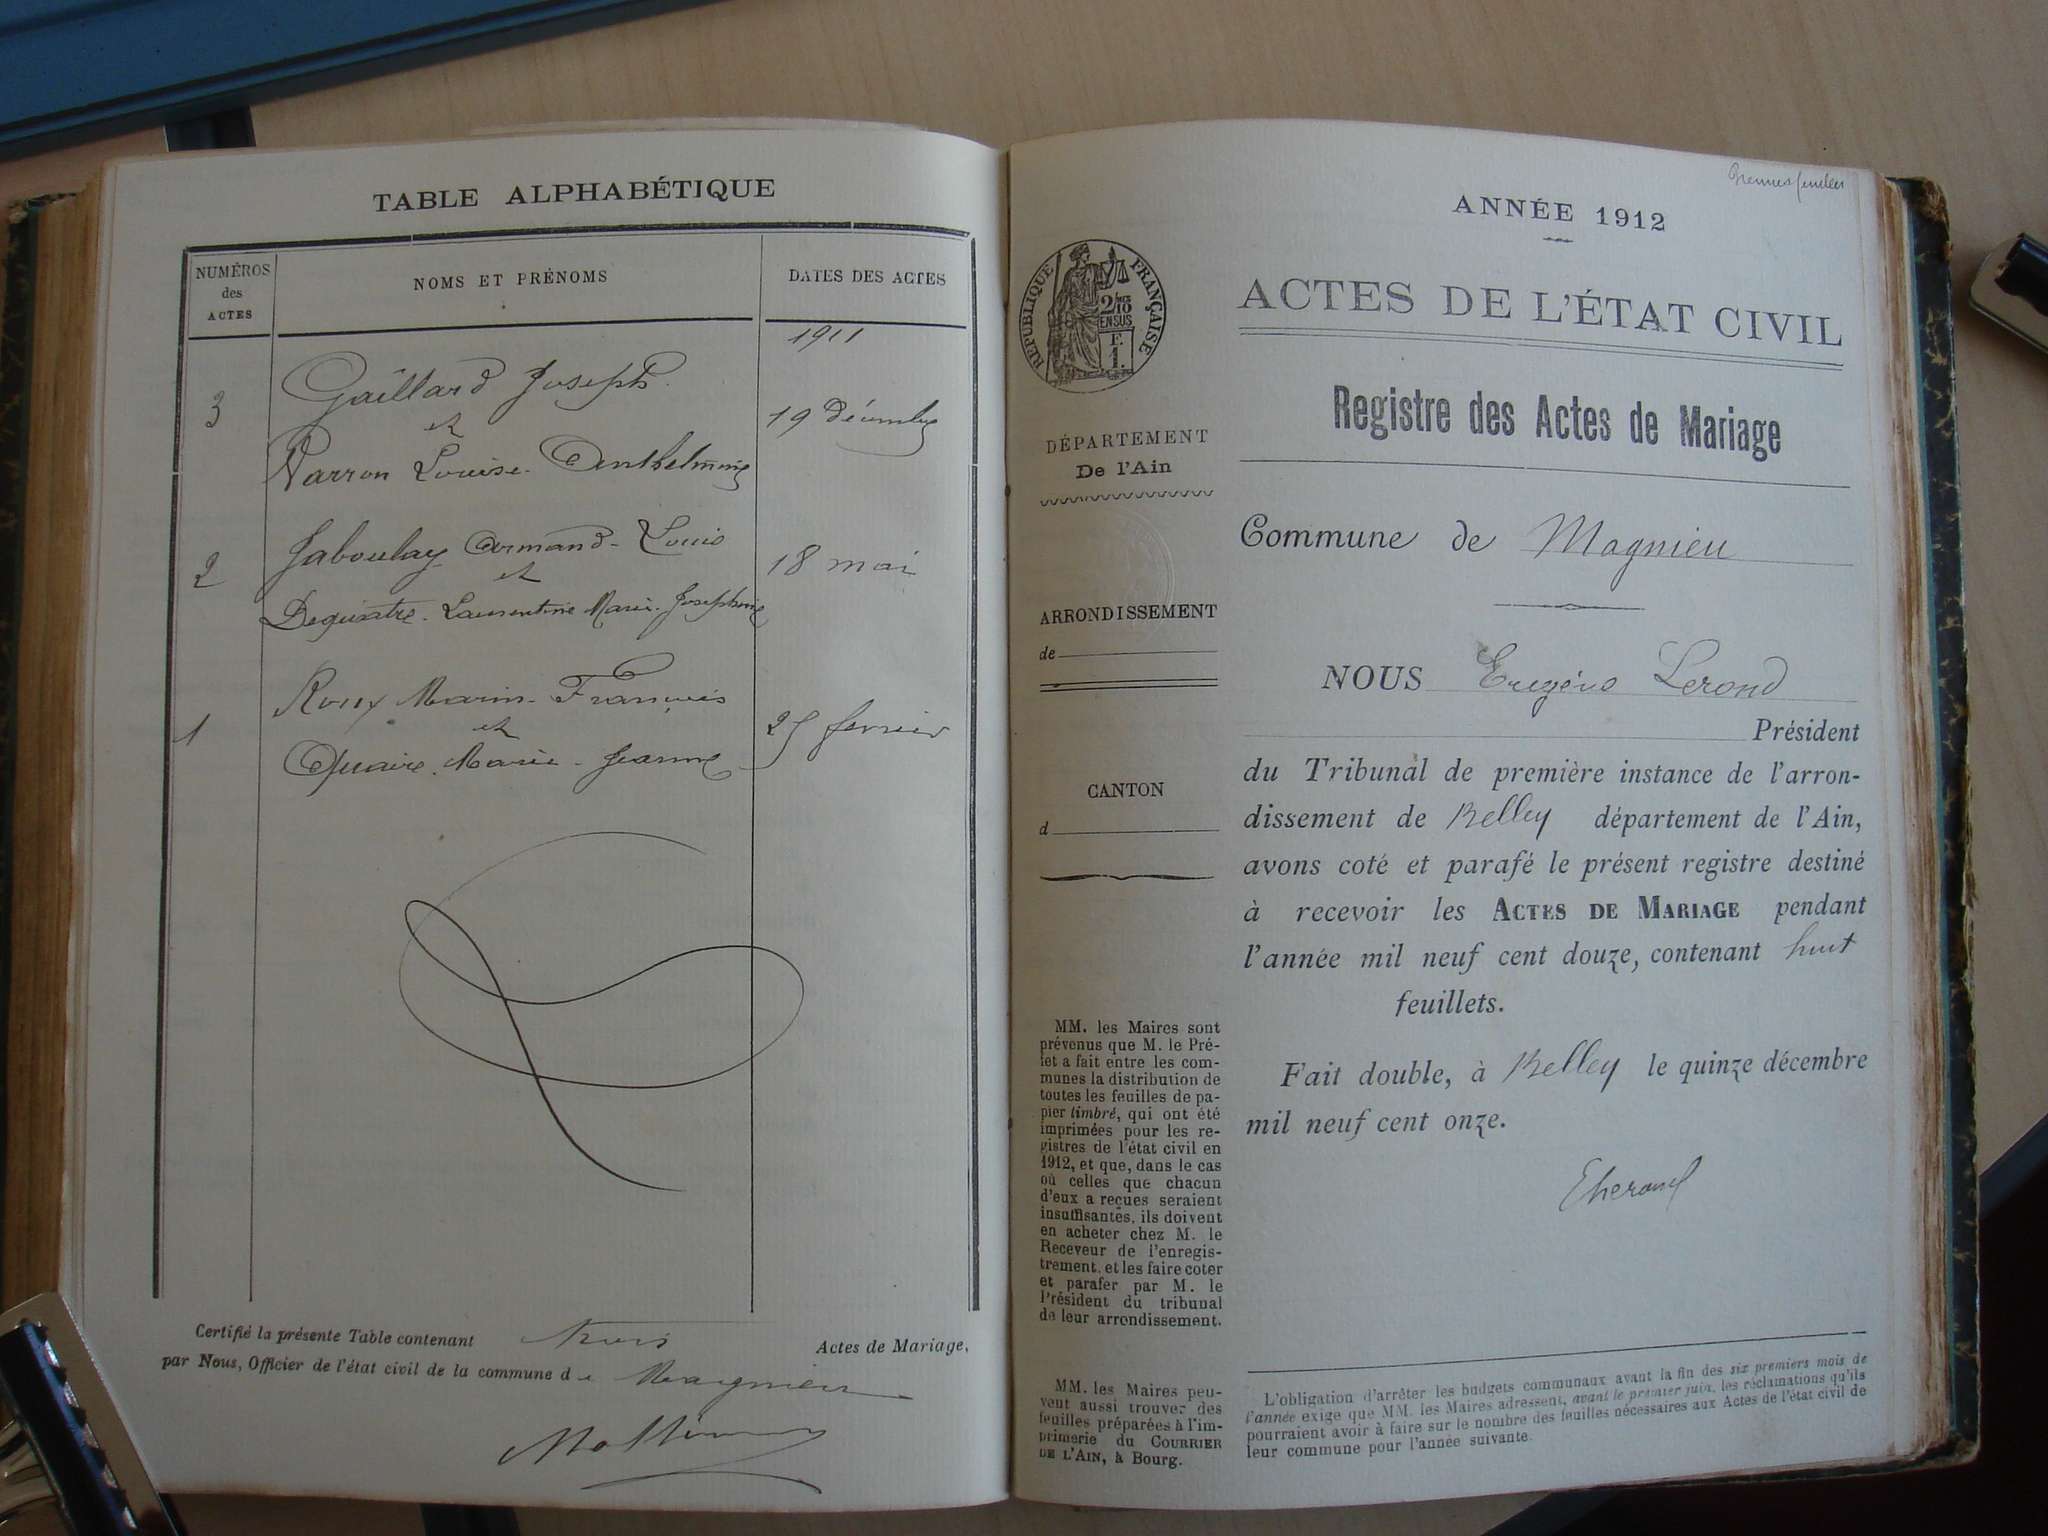 TABLE ALPHABÉTIQUE
NUMÉROS
des
ACTES
NOMS ET PRÉNOMS
DATES DES ACTES
1911
3
Gaillard Joseph
et
Varron Louise Anthelmine
19 décembre
2
Jaboulay Armand-Louis
et
Dequatre Laurentine Marie Josephine
18 mai
1
Roux Marin-François
et
Marie-Jeanne
25 fevrier
Certifié la présente Table contenant trois Actes de Mariage,
par Nous, Officier de l'état civil de la commune de Magnieu
ANNÉE 1912
RÉPUBLIQUE FRANÇAISE
2/10
EN SUS
F.
1.
ACTES DE L'ÉTAT CIVIL
Registre des Actes de Mariage
DÉPARTEMENT
De l'Ain
ARRONDISSEMENT
de
CANTON
d
MM. les Maires sont
prévenus que M. le Pré-
fet a fait entre les com-
munes la distribution de
toutes les feuilles de pa-
pier timbré, qui ont été
imprimées pour les re-
gistres de l'état civil en
1912, et que, dans le cas
où celles que chacun
d'eux a reçues seraient
insuffisantes, ils doivent
en acheter chez M. le
Receveur de l'enregis-
trement, et les faire coter
et parafer par M. le
Président du tribunal
de leur arrondissement.
MM. les Maires peu-
vent aussi trouver des
feuilles préparées à l'im-
primerie du COURRIER
DE L'AIN, à Bourg.
Commune de Magnieu
NOUS Eugène Lerond
Président
du Tribunal de première instance de l'arron-
dissement de Belley département de l'Ain,
avons coté et parafé le présent registre destiné
à recevoir les ACTES DE MARIAGE pendant
l'année mil neuf cent douze, contenant huit
feuillets.
Fait double, à Belley le quinze décembre
mil neuf cent onze.
L'obligation d'arrêter les budgets communaux avant la fin des six premiers mois de
l'année exige que MM. les Maires adressent, avant le premier juin, les réclamations qu'ils
pourraient avoir à faire sur le nombre des feuilles nécessaires aux Actes de l'état civil de
leur commune pour l'année suivante.